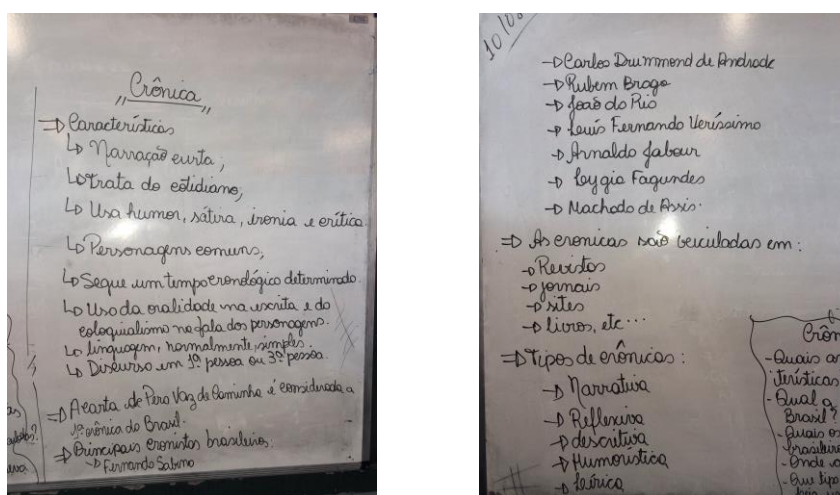 "Crônica"
⇒ Características
↳ Narração curta;
↳ trata do cotidiano;
↳ Usa humor, sátira, ironia e crítica.
↳ Personagens comuns;
↳ Segue um tempo cronológico determinado.
↳ Uso da oralidade na escrita e do
coloquialismo na fala dos personagens.
↳ linguagem, normalmente, simples.
↳ Discurso em 1ª pessoa ou 3ª pessoa.
⇒ A carta de Pero Vaz de Caminha é considerada a
1ª crônica do Brasil.
⇒ Principais cronistas brasileiros:
→ Fernando Sabino
10/08
→ Carlos Drummond de Andrade
→ Rubem Braga
→ João do Rio
→ Luís Fernando Veríssimo
→ Arnaldo Jabour
→ Lygia Fagundes
→ Machado de Assis.
⇒ As cronicas são veiculadas em:
→ Revistas
→ jornais
→ sites
→ livros, etc...
⇒ Tipos de crônicas:
→ Narrativa
→ Reflexiva
→ descritiva
→ Humorística
→ Leírica
Crôn
- Quais as
terísticas
- Qual a
Brasil?
- Quais os
brasileiro
- Onde
- Que tip